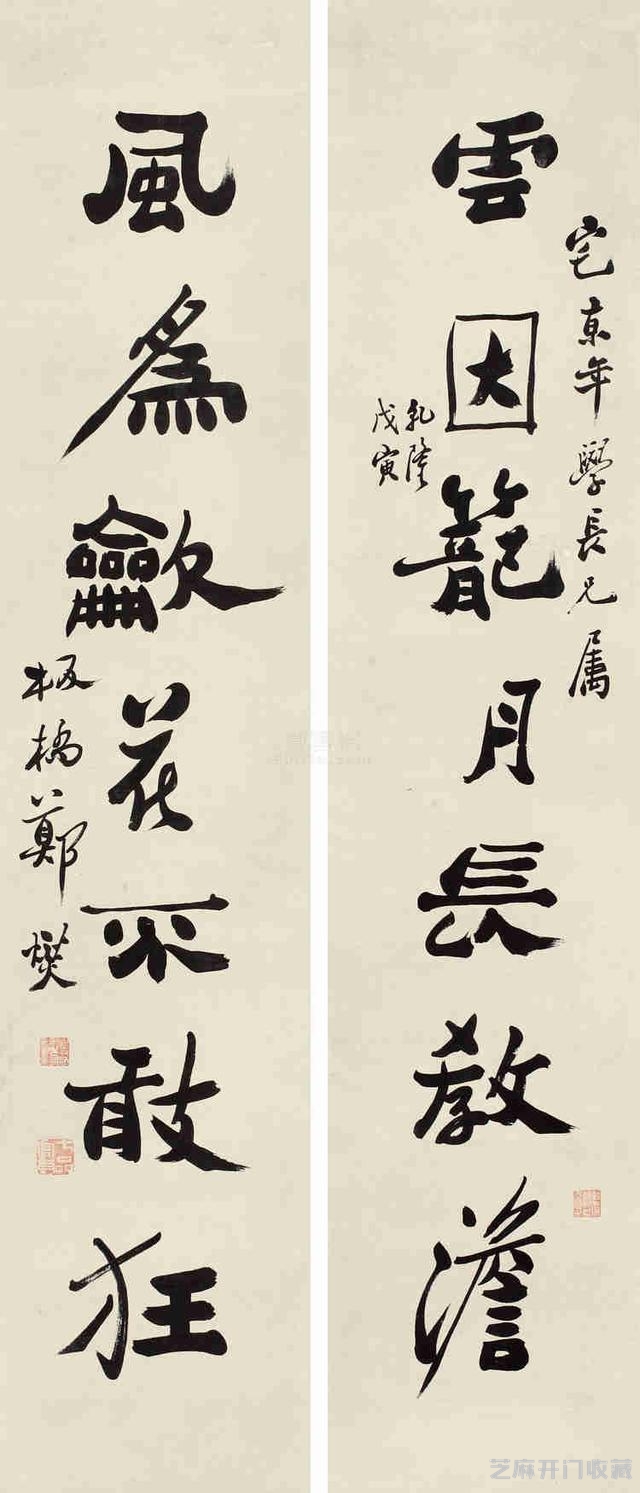 宅京年學長兄属
雲因籠月長教澹
乾隆戊寅
風為斂花不敢狂
板橋鄭燮
芝麻开门收藏